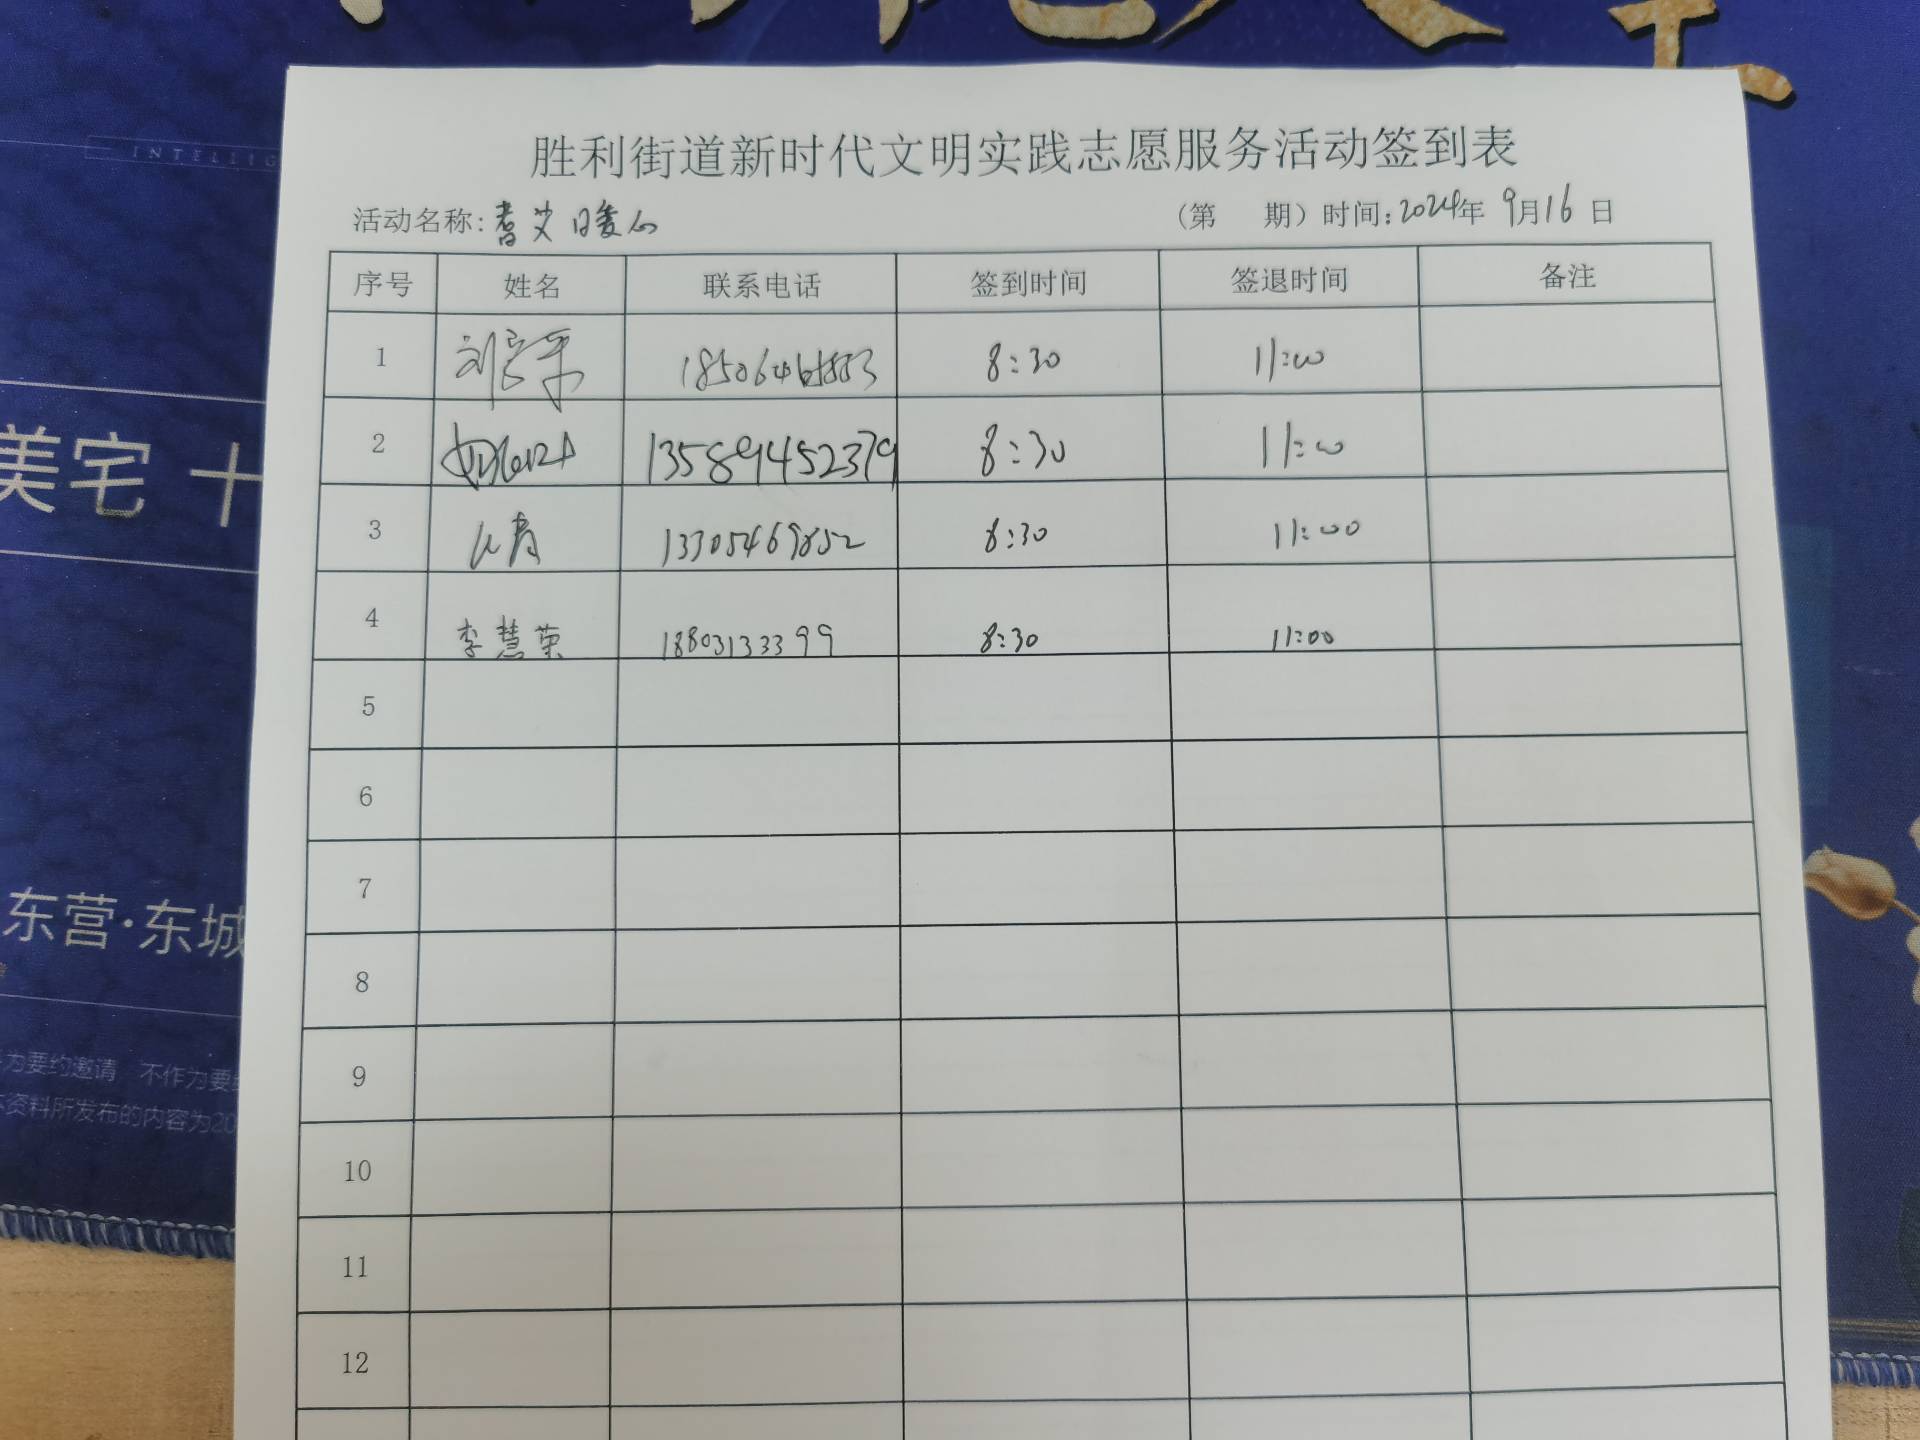 INTELLIG
胜利街道新时代文明实践志愿服务活动签到表
活动名称:耆艾暖心 (第 期)时间:2024年9月16日
序号 姓名 联系电话 签到时间 签退时间 备注
1 8:30 11:00
2 13589452379 8:30 11:00
3 13305469852 8:30 11:00
4 李慧荣 18803133399 8:30 11:00
5
6
7
8
9
10
11
12
美宅 十
东营·东城
为要约邀请 不作为要约
资料所发布的内容为20